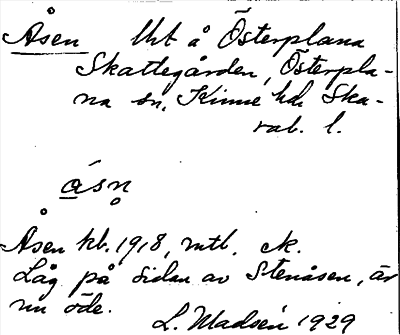 Åsen Lht å Österplana
Skattegården, Österpla-
na sn, Kinne hd, Ska-
rab. l.
ásn̥
Åsen kb. 1918, mtl. ek.
Låg på sidan av Stenåsen, är
nu öde.
L. Madsén 1929